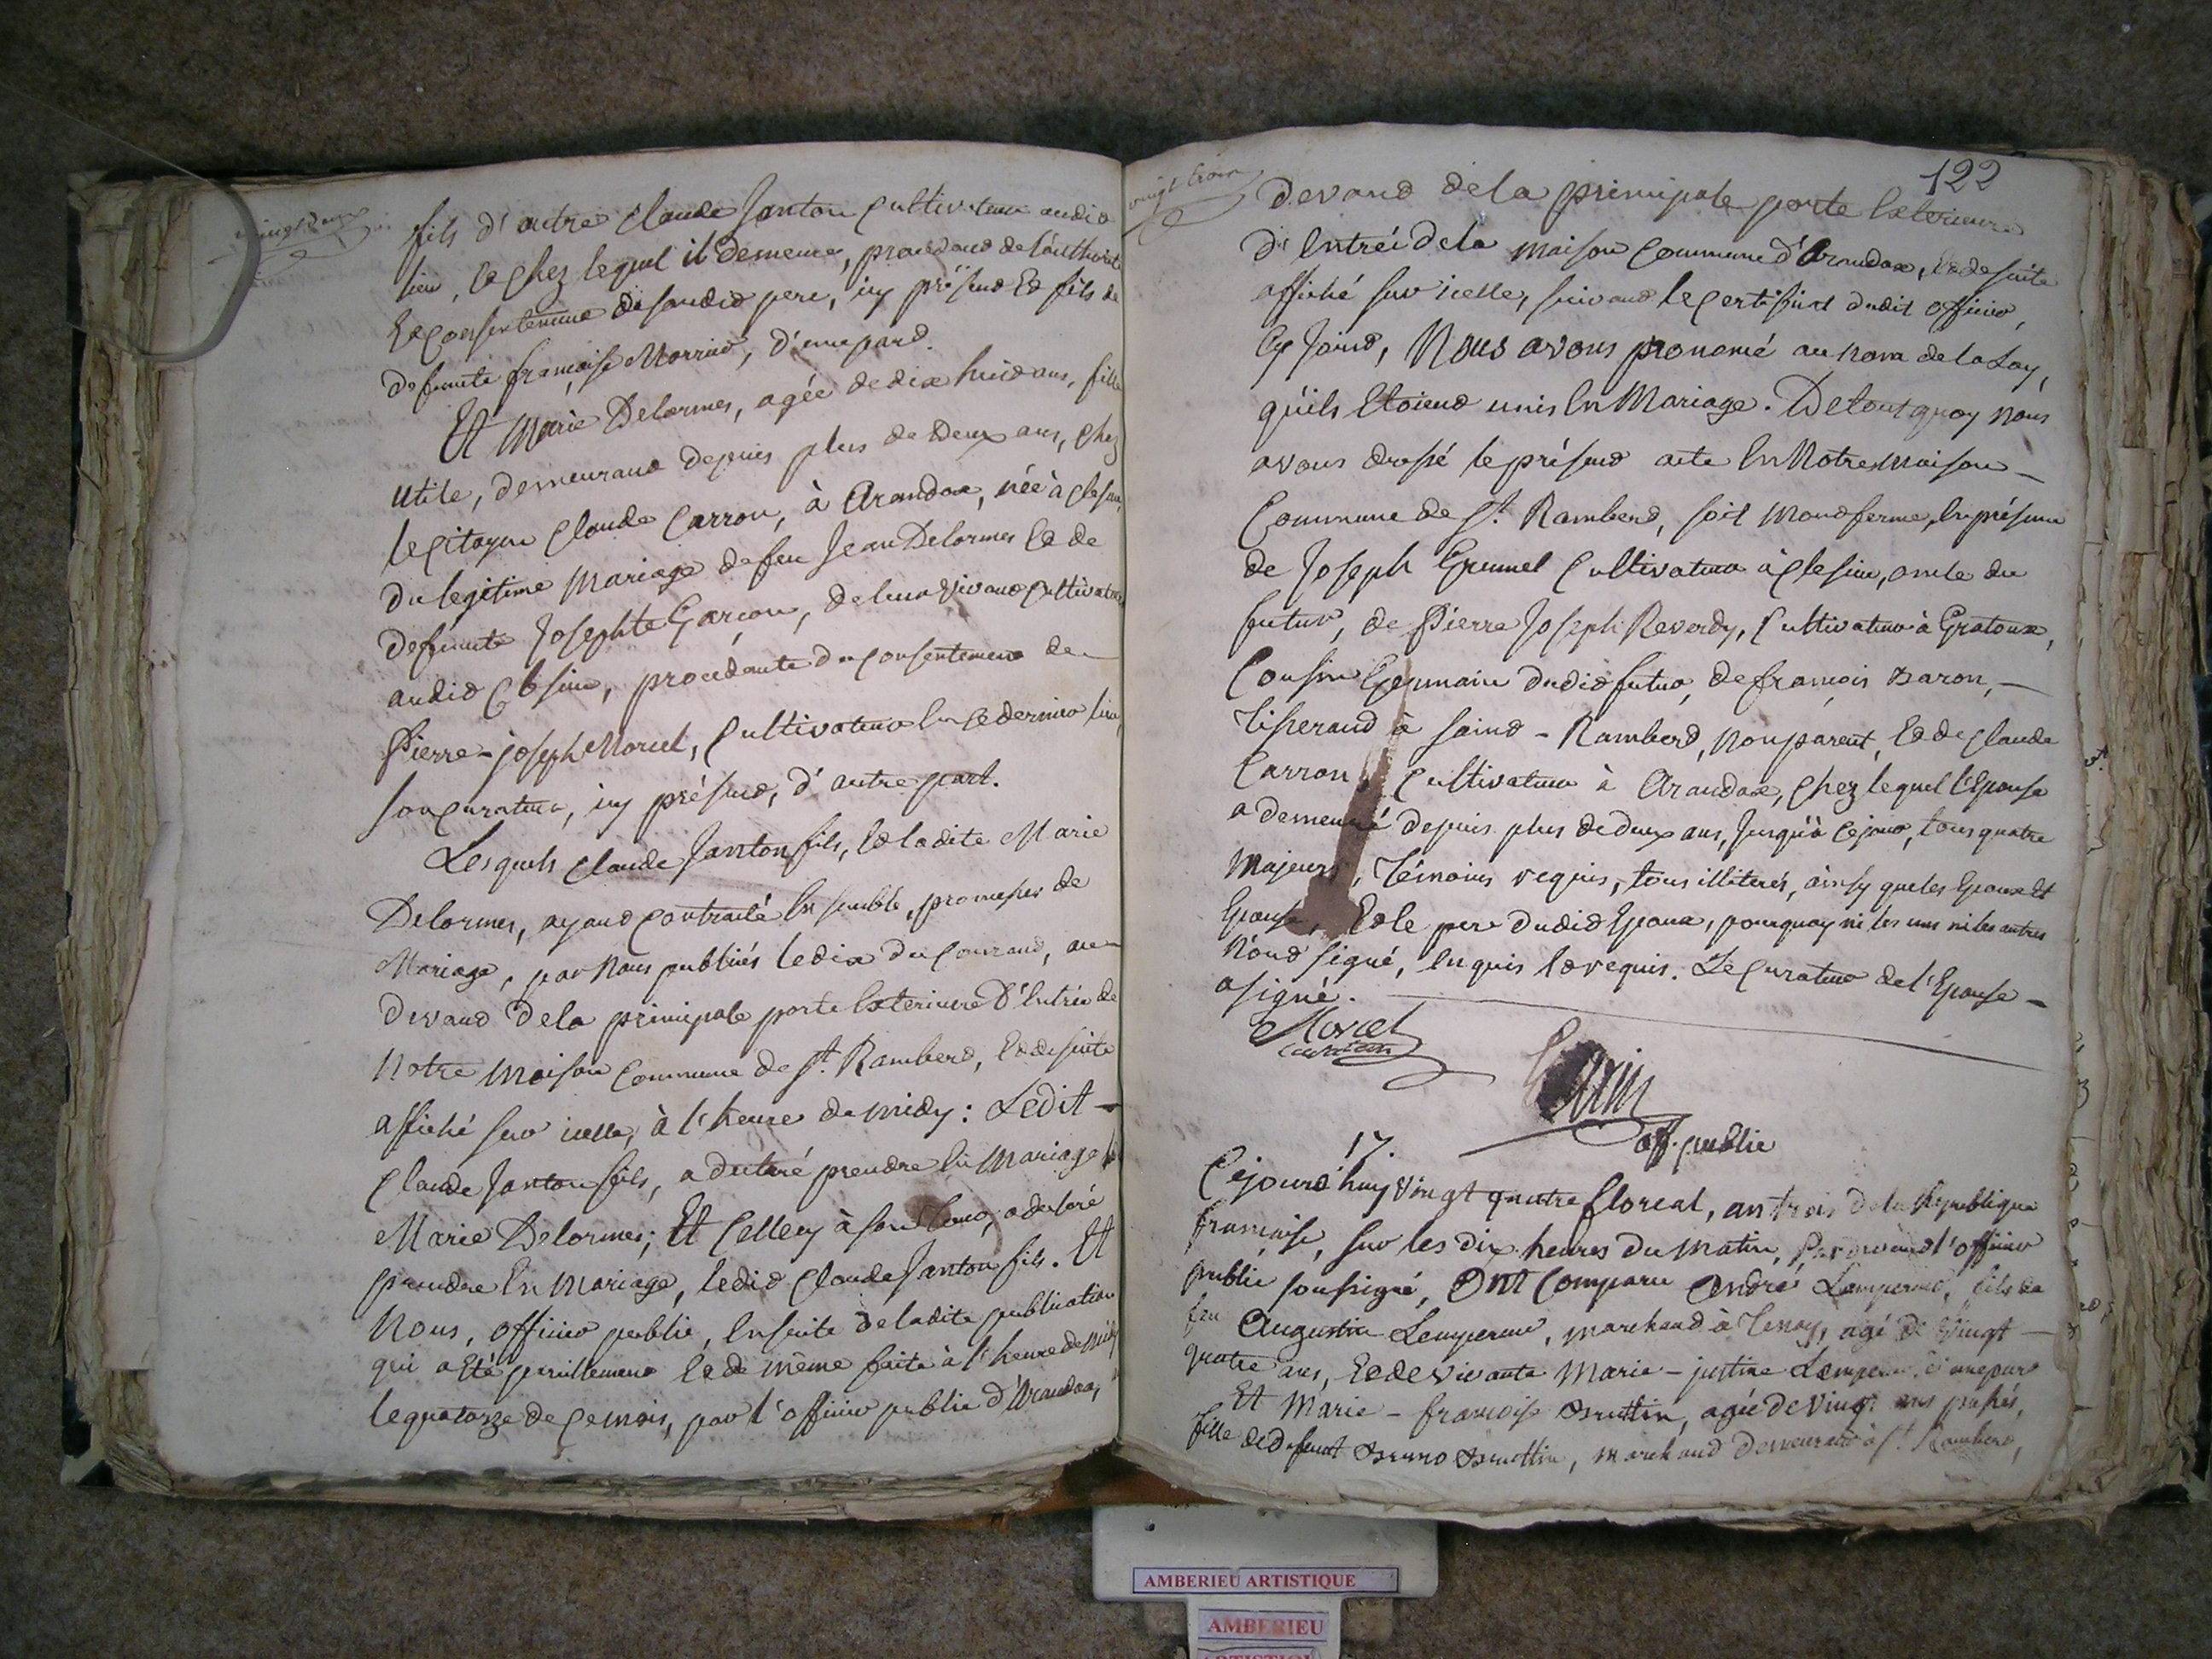 vingt deux
fils d'autre Claude Janton Cultivateur audit
lieu, Et Chez lequel il demeure, procédant de l'authorité
Et Consentement de sondit pere, icy présent Et fils de
defunte françoise Morrier, d'une part.
Et Marie Delormes, agée de dix huit ans, fille
utile, demeurant depuis plus de deux ans, chez
le Citoyen Claude Carron, à Arandax, née à Clesieu,
du legitime Mariage de feu Jean Delormes Et de
defunte Josephte Garçon, de leur vivant Cultivateurs
audit Clesieu, procédante du Consentement de
Pierre-joseph Morcel, Cultivateur En Ce dernier lieu,
son Curateur, icy présent, d'autre part.
Lesquels Claude Janton fils, Et ladite Marie
Delormes, ayant Contracté Ensemble, promesses de
Mariage, par Nous publiées le dix du Courant, au
devant de la principale porte Exterieure d'Entrée de
Notre Maison Commune de St. Rambert, Et de suite
affiché sur icelle, à l'heure de midy: Ledit
Claude Janton fils, a declaré prendre En Mariage la
Marie Delormes; Et Cellecy à son tour, a declaré
prendre En Mariage, ledit Claude Janton fils. Et
Nous, officier public, Ensuite de ladite publication
qui a Eté pareillement Et de même faite à l'heure de midy
le quatorze de Ce mois, par l'officier public d'Arandax,
vingt trois
122
devant de la principale porte Exterieure
d'Entrée de la Maison Commune d'Arandax, Et de suite
affiché sur icelle, suivant le Certificat dudit officier,
Cy Joint, Nous avons prononcé au Nom de la Loy,
qu'ils Etoient unis En Mariage. De tout quoy Nous
avons dressé le présent acte En Notre Maison
Commune de St. Rambert, soit Montferme, En présence
de Joseph Grumel Cultivateur à Clesieu, oncle du
futur, de Pierre Joseph Reverdy, Cultivateur à Gratoux,
Cousin Germain dudit futur, de françois Baron,
Tisserand à Saint-Rambert, Non parent, Et de Claude
Carron, Cultivateur à Arandax, Chez lequel l'Epouse
a demeuré depuis plus de deux ans, Jusqu'à Ce jour, tous quatre
Majeurs, Témoins requis, tous illiterés, ainsy que les Epoux Et
Epouse, Et le pere dudit Epoux, pourquoy ni les uns ni les autres
N'ont signé, Enquis Et requis. Le Curateur de l'Epouse
a signé.
Morcel
off. public
17.
Cejourd'huy vingt quatre floreal, an trois de la République
françoise, sur les dix heures du Matin, Pardevant l'officier
public soussigné, Ont Comparu André Lempereur, fils de
feu Augustin Lempereur, marchand à Tenay, agé de Vingt
quatre ans, Et de vivante Marie-justine Lempereur, d'une part
Et Marie-françoise Bruttin, agée de Vingt ans passés,
fille de defunt Bruno Bruttin, marchand demeurant à St. Rambert,
AMBERIEU ARTISTIQUE
AMBERIEU
ARTISTIQUE